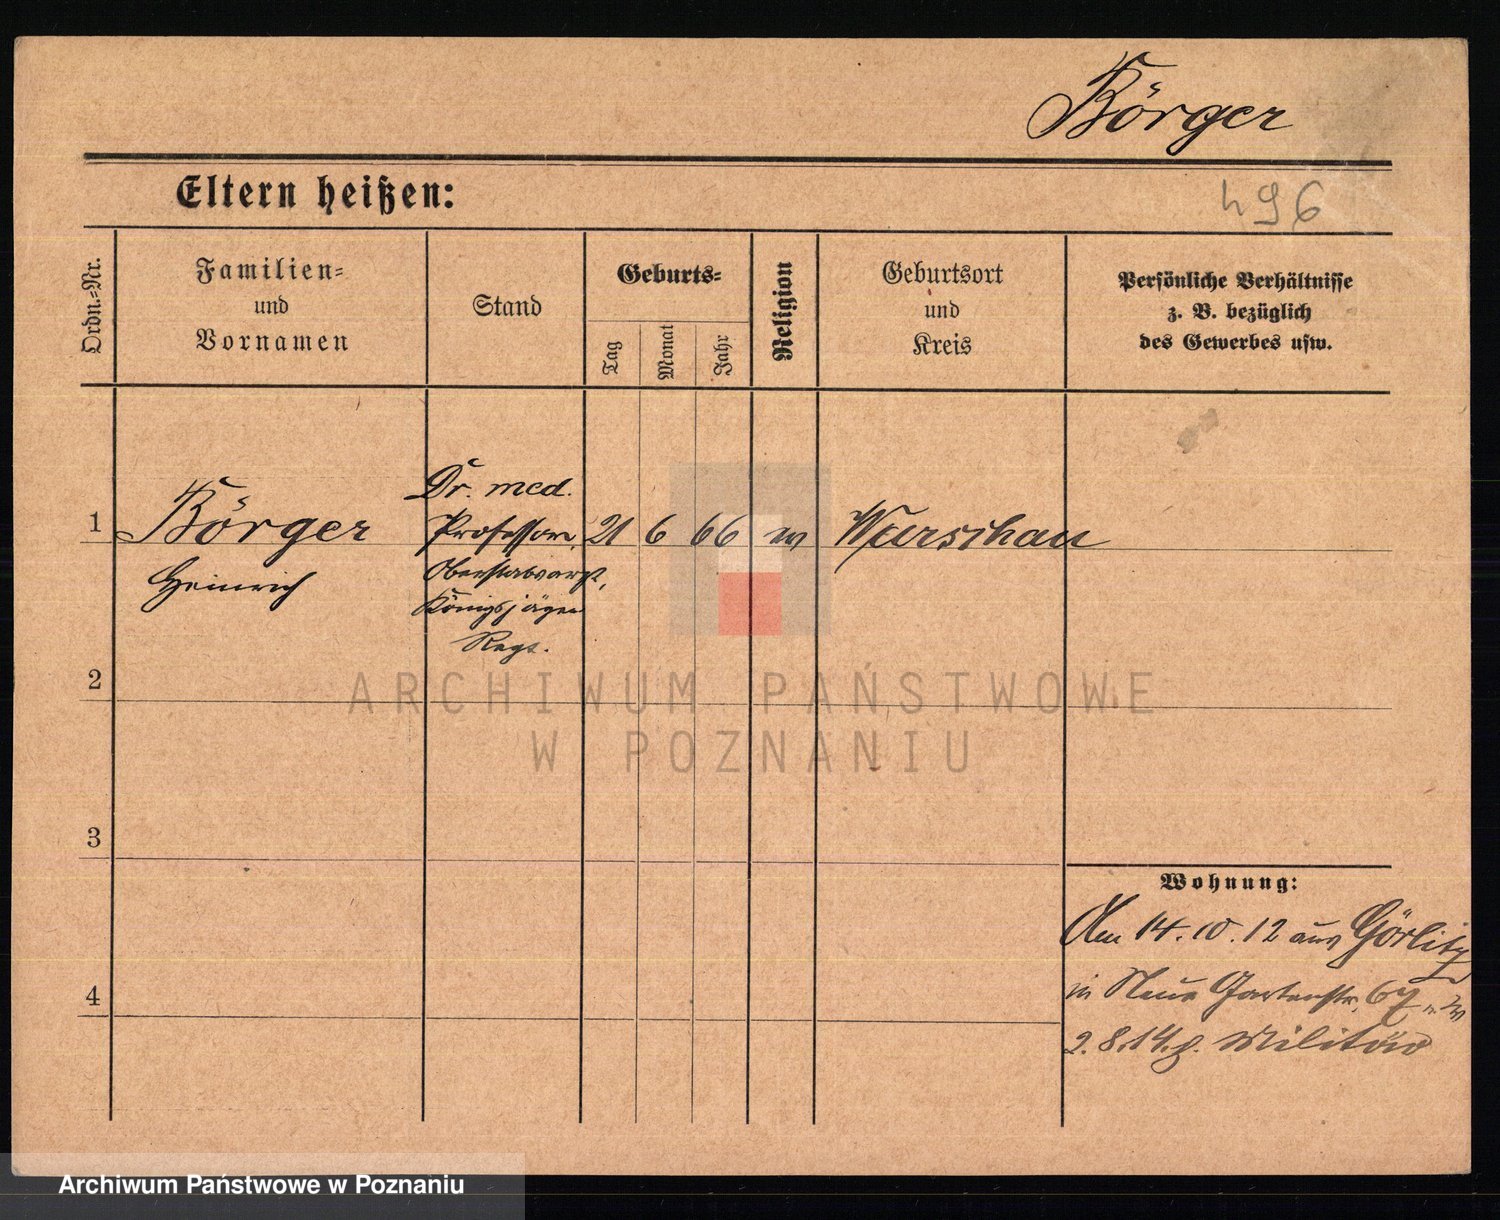 Börger
Eltern heißen:
496
Ordn.-Nr.
Familien-
und
Vornamen
Stand
Geburts-
Tag
Monat
Jahr
Religion
Geburtsort
und
Kreis
Persönliche Verhältnisse
z. B. bezüglich
des Gewerbes usw.
1
Börger
Heinrich
Dr. med.
Professor,
Oberstabsarzt,
Königsjäger
Regt.
21 6 66
Warschau
2
3
4
Wohnung:
14.10.12 aus Görlitz
in Neue Gartenstr. 67
2.8.14. z. Militär
ARCHIWUM PAŃSTWOWE
W POZNANIU
Archiwum Państwowe w Poznaniu